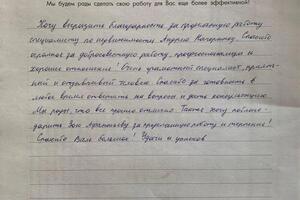 Мы будем рады сделать свою работу для Вас еще более эффективной!
Хочу выразить благодарность за проделанную работу
специалисту по недвижимости Андрею Спасибо
огромное за добросовестную работу, профессионализм и
хорошее отношение! Очень грамотный специалист, прият-
ный и отзывчивый человек. Спасибо за готовность в
любое время ответить на вопросы и дать консультацию.
Мы рады, что все прошло отлично. Также хочу поблаго-
дарить Зою за проделанную работу и терпение!
Спасибо Вам большое! Удачи и успехов